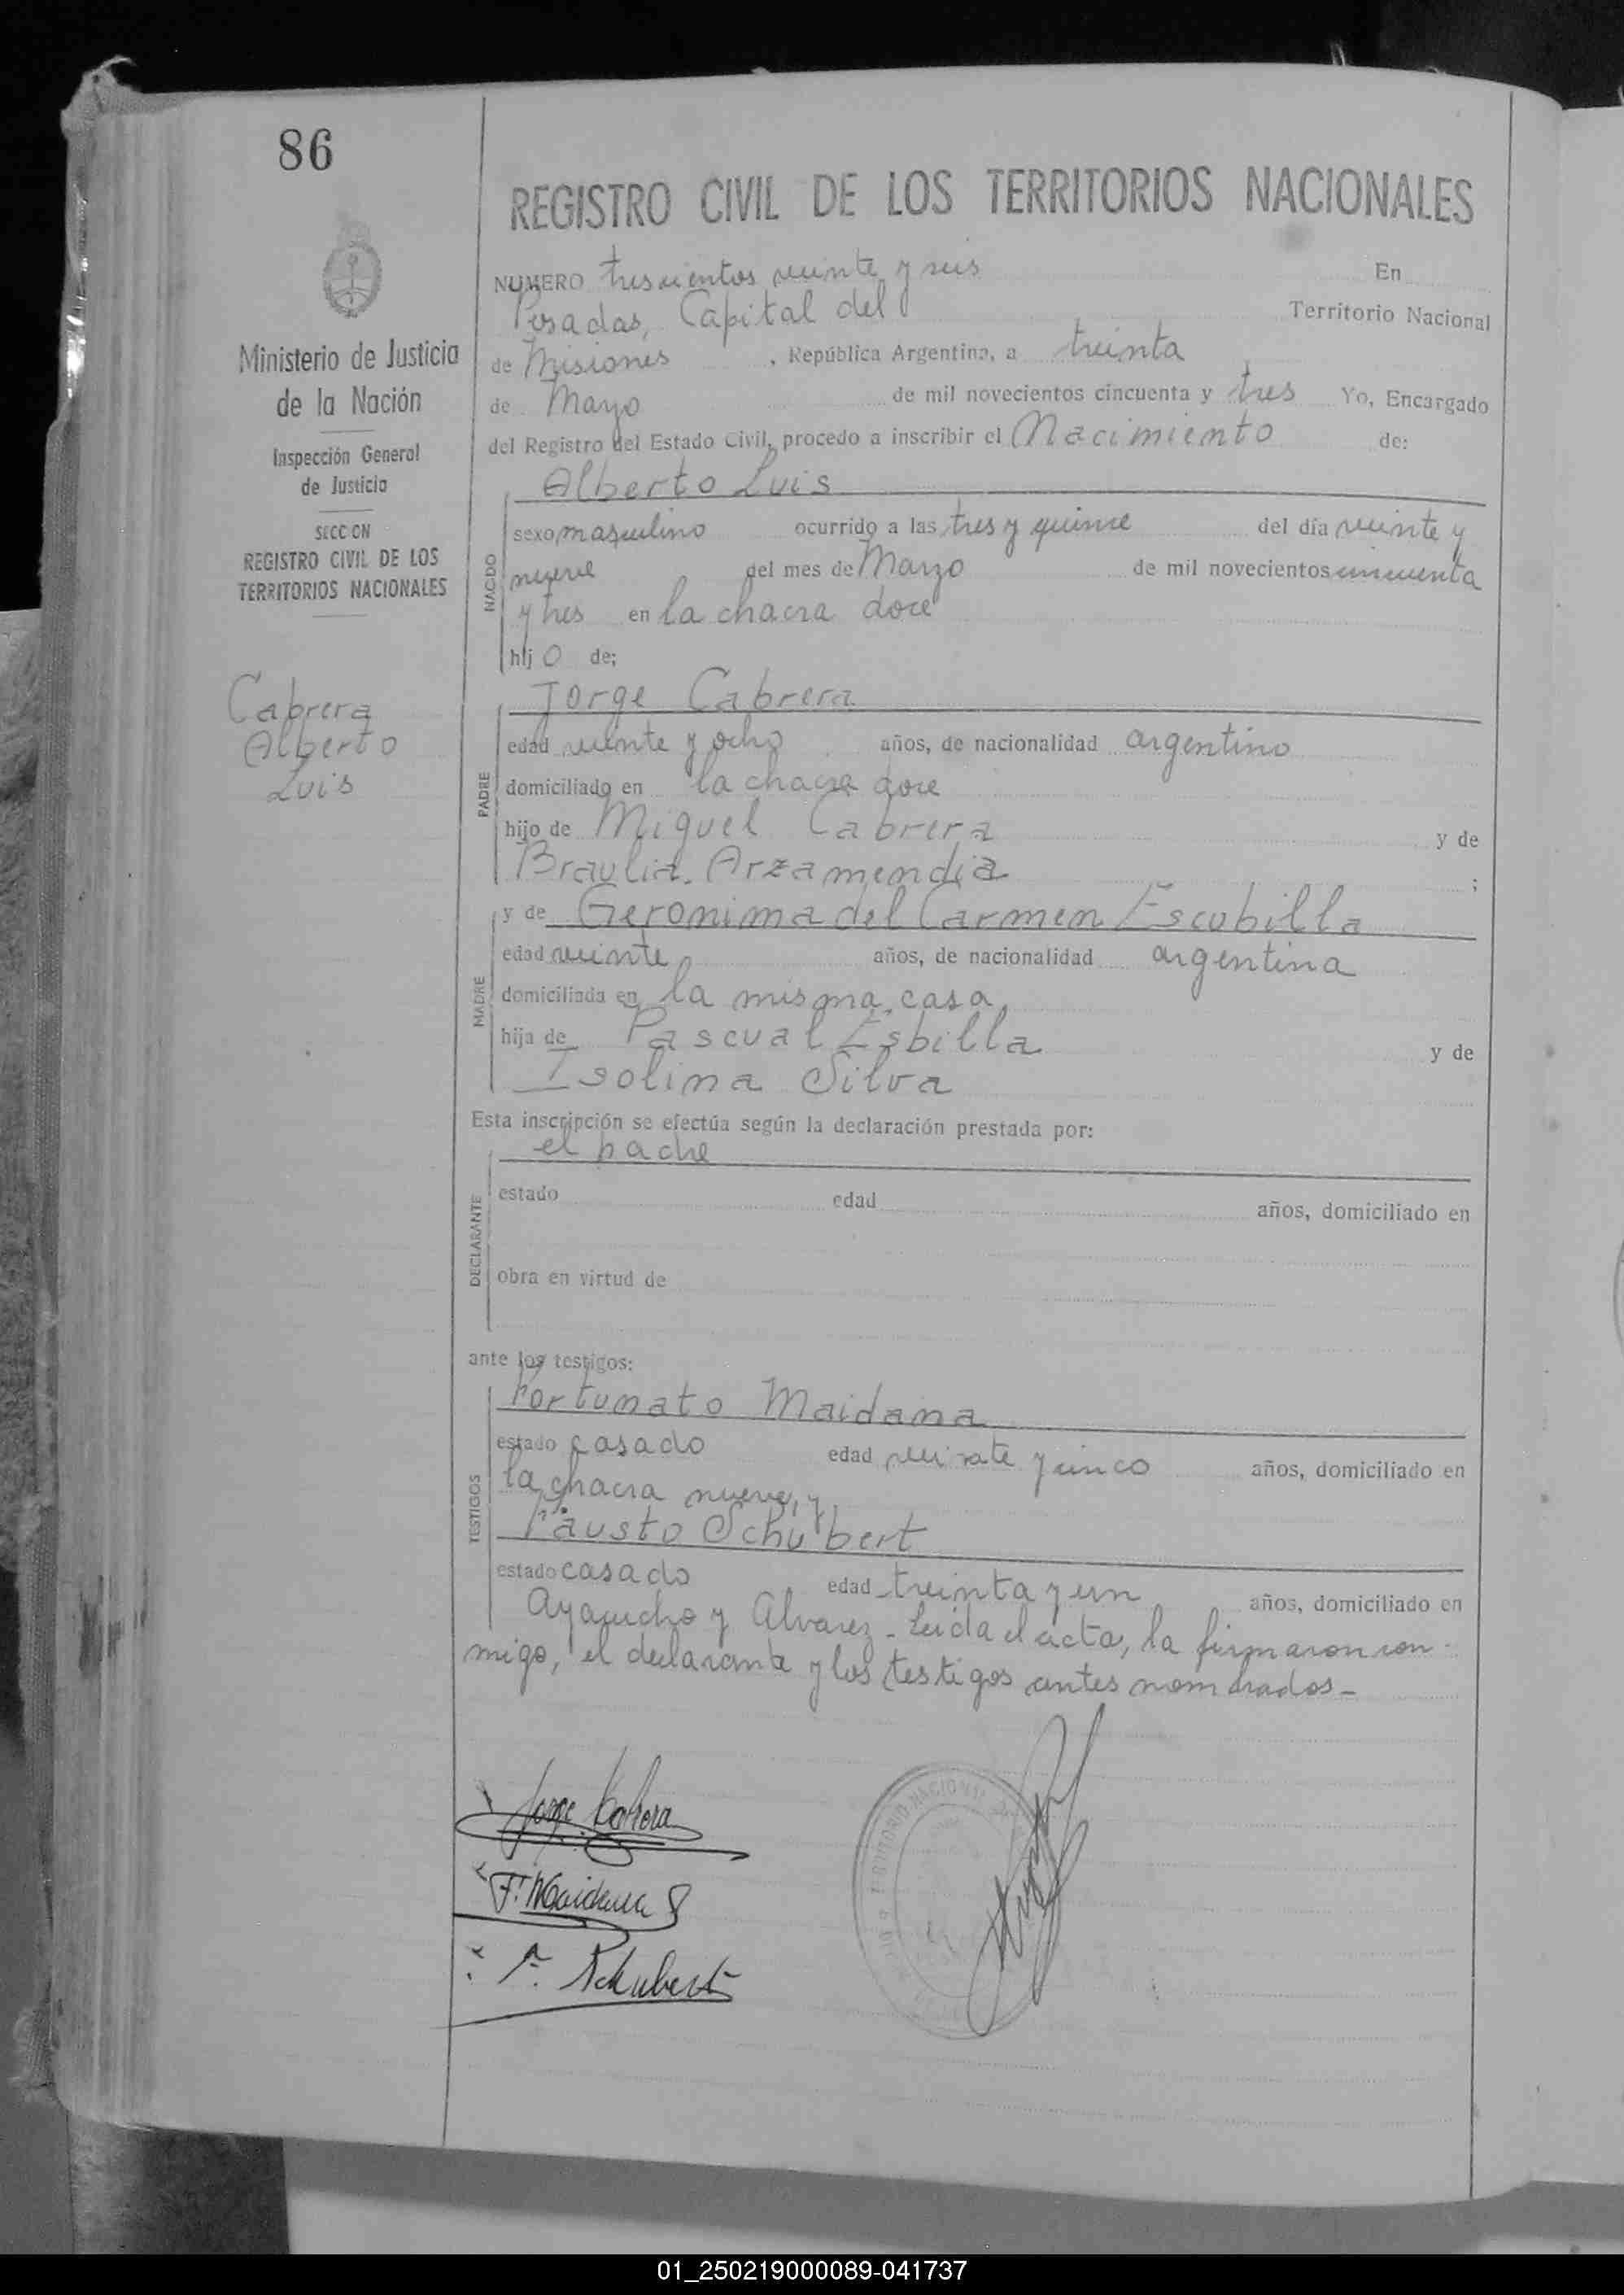 86
REGISTRO CIVIL DE LOS TERRITORIOS NACIONALES
Ministerio de Justicia
de la Nación
Inspección General
de Justicia
SECCION
REGISTRO CIVIL DE LOS
TERRITORIOS NACIONALES
Cabrera
Alberto
Luis
NUMERO trescientos veinte y seis En
Posadas, Capital del Territorio Nacional
de Misiones, República Argentina, a treinta
de Mayo de mil novecientos cincuenta y tres Yo, Encargado
del Registro del Estado Civil, procedo a inscribir el Nacimiento de:
Alberto Luis
NACIDO
sexo masculino ocurrido a las tres y quince del día veinte y
nueve del mes de Marzo de mil novecientos cincuenta
y tres en la chacra doce
hij o de;
Jorge Cabrera
PADRE
edad veinte y ocho años, de nacionalidad argentino
domiciliado en la chacra doce
hijo de Miguel Cabrera y de
Braulia Arzamendia ;
y de Geronima del Carmen Escubilla
MADRE
edad veinte años, de nacionalidad argentina
domiciliada en la misma casa,
hija de Pascual Esbilla y de
Isolina Silva
Esta inscripción se efectúa según la declaración prestada por:
el padre
DECLARANTE
estado edad años, domiciliado en
obra en virtud de
ante los testigos:
Fortunato Maidana
TESTIGOS
estado casado edad veinte y cinco años, domiciliado en
la chacra nueve, y
Fausto Schubert
estado casado edad treinta y un años, domiciliado en
Ayacucho y Alvarez - Leida el acta, la firmaron con-
migo, el declarante y los testigos antes nombrados -
Jorge Cabrera
F. Maidana
F. Schubert
01_250219000089-041737